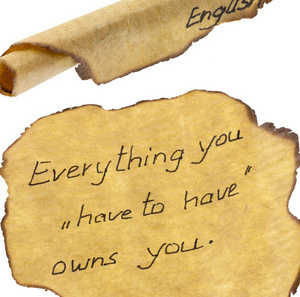 English
Everything you
„have to have"
owns you.